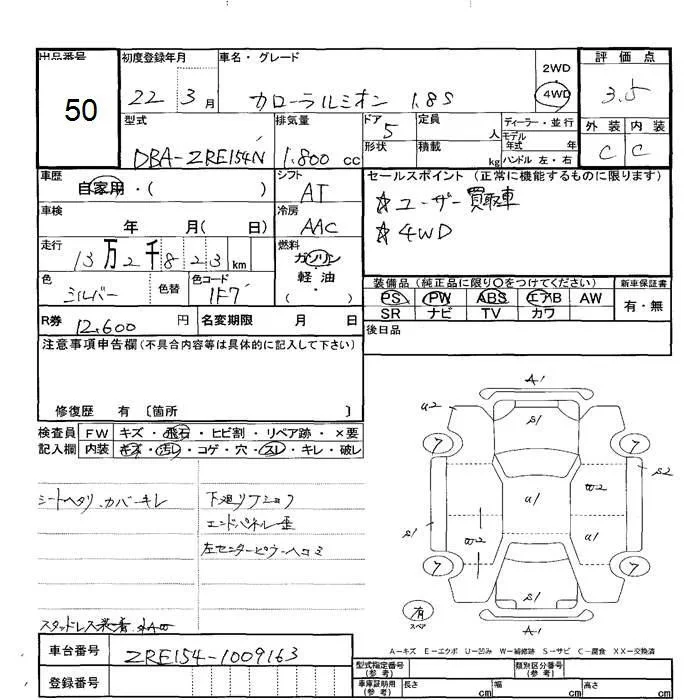 出品番号 初度登録年月 車名・グレード 2WD 評価点
50 22 3月 カローラルミオン 1.8S 4WD 3.5
型式 排気量 ドア 5 定員 人 ディーラー・並行 外装 内装
DBA-ZRE154N 1.800 cc 形状 積載 kg モデル年式 年 C C
ハンドル 左・右
車歴 シフト セールスポイント (正常に機能するものに限ります)
自家用・( ) AT ☆ユーザー買取車
車検 冷房 ☆4WD
年 月( 日) AAC
走行 燃料
13万2千823km ガソリン
色 色替 色コード 軽・油 装備品 (純正品に限り○をつけてください) 新車保証書
シルバー 1F7 ( ) PS PW ABS エアB AW 有・無
SR ナビ TV カワ
R券 12,600 円 名変期限 月 日 後日品
注意事項申告欄(不具合内容等は具体的に記入して下さい)
修復歴 有 〔箇所 〕
検査員 FW キズ・飛石・ヒビ割・リペア跡・×要
記入欄 内装 キズ・汚レ・コゲ・穴・スレ・キレ・破レ
シートヘタリ、カバーキレ 下廻りサビ
エンドパネル歪
左センターピラーヘコミ
スタッドレス装着
A1
U2 S1
7 7
S2
U1 W2
S1 W2 U1
7 7
S1
有 スペア A1
A-キズ E-エクボ U-凹み W-補修跡 S-サビ C-腐食 XX-交換済
車台番号 ZRE154-1009163
型式指定番号(参考) 類別区分番号(参考)
登録番号 車庫証明用(参考) 長さ cm 幅 cm 高さ cm